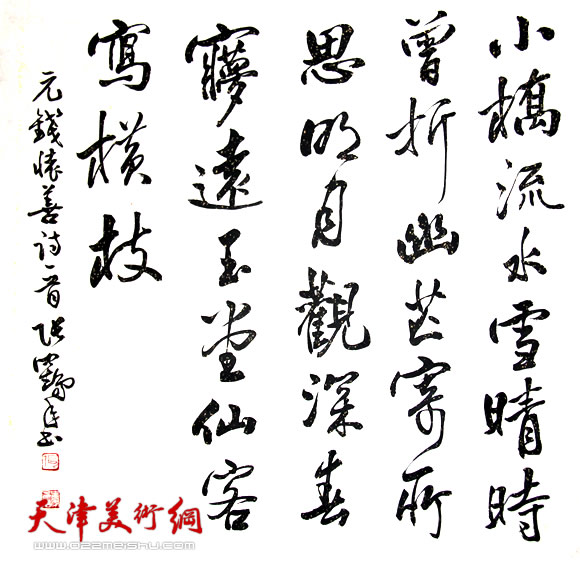 小橋流水雪晴時
曾折幽芳寄所
思明月觀深春
夢遠玉堂仙客
寫橫枝
元錢惟善詩一首
天津美術網
www.022meishu.com